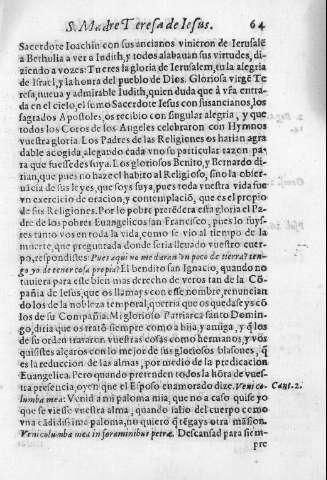 S. Madre Teresa de Iesus. 64
Sacerdote Ioachin con sus ancianos vinieron de Ierusalē
a Bethulia a ver a Iudith, y todos alabauan sus virtudes, di-
ziendo a vozes: Tu eres la gloria de Ierusalem, tu la alegria
de Israel, y la honra del pueblo de Dios. Gloriosa virgē Te
resa, nueua y admirable Iudith, quien duda que à vr̃a entra-
da en el cielo, el sumo Sacerdote Iesus con sus ancianos, los
sagrados Apostoles, os recibio con singular alegria, y que
todos los Coros de los Angeles celebraron con Hymnos
vuestra gloria. Los Padres de las Religiones os harian agra
dable acogida, alegando cada vno su particular razon pa-
ra que fuessedes suya. Los gloriosos Benito, y Bernardo di-
rian, que pues no haze el habito al Religioso, sino la obser-
uãcia de sus leyes, que soys suya, pues toda vuestra vida fue
vn exercicio de oracion, y contemplaciõ, que es el propio
de sus Religiones. Por lo pobre pretẽdera esta gloria el Pa-
dre de los pobres Euangelicos san Francisco, pues lo fuys-
tes tanto vos en toda la vida, como se vio al tiempo de la
muerte, que preguntada donde seria lleuado vuestro cuer-
po, respondistes: Pues aqui no me daran vn poco de tierra? ten-
go yo de tener cosa propia? El bendito san Ignacio, quando no
tuuiera para este bien mas derecho de veros tan de la Cõ-
pañia de Iesus, que os llamays con esse nombre, renuncian
do los de la nobleza temporal, querria que os quedasseys cõ
los de su Compañia. Mi glorioso Patriarca santo Domin-
go, diria que os tratò siempre como a hija, y amiga, y q̃ los
de su orden trataron vuestras cosas como hermanos, y vos
quisistes alçaros con lo mejor de sus gloriosos blasones, q̃
es la reduccion de las almas, por medio de la predicacion
Euangelica. Pero quando pretenden todos la hõra de vues-
tra presencia, oyen que el Esposo enamorado dize. Veni co- Cant. 2.
lumba mea: Venid a mi paloma mia, que no a caso quise yo
que se viesse vuestra alma, quando salio del cuerpo como
vna cãdidissima paloma, no quiero q̃ tẽgays otra mãsion.
Veni columba mea in foraminibus petræ. Descansad para siem-
pre